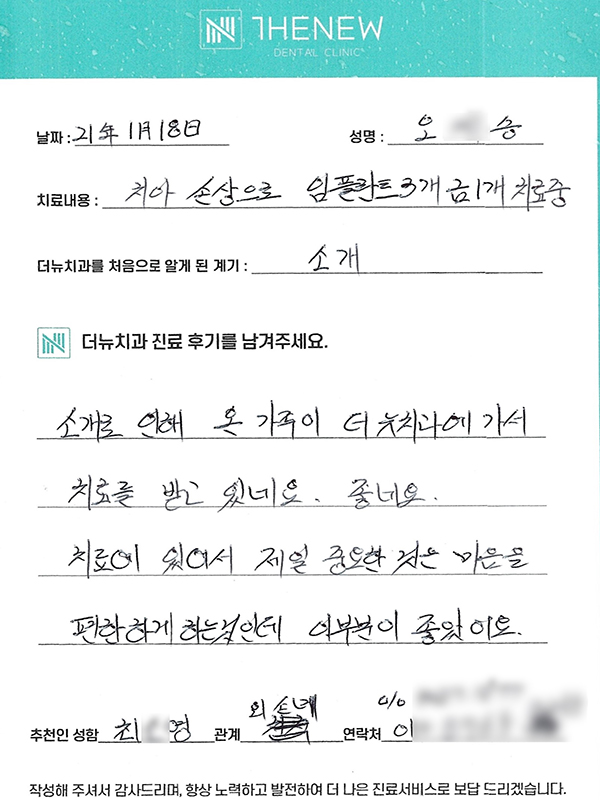 THENEW
DENTAL CLINIC
날짜 : 21年 11月 18日 성명 : 오 승
치료내용 : 치아 손상으로 임플란트 3개 금1개 치료중
더뉴치과를 처음으로 알게 된 계기 : 소개
더뉴치과 진료 후기를 남겨주세요.
소개로 인해 온 가족이 더 뉴치과에 가서
치료를 받고 있네요. 좋네요.
치료에 있어서 제일 중요한 것은 마음을
편한하게 하는것인데 이부분이 좋았어요.
추천인 성함 최 영 관계 외손녀 연락처 010
작성해 주셔서 감사드리며, 항상 노력하고 발전하여 더 나은 진료서비스로 보답 드리겠습니다.